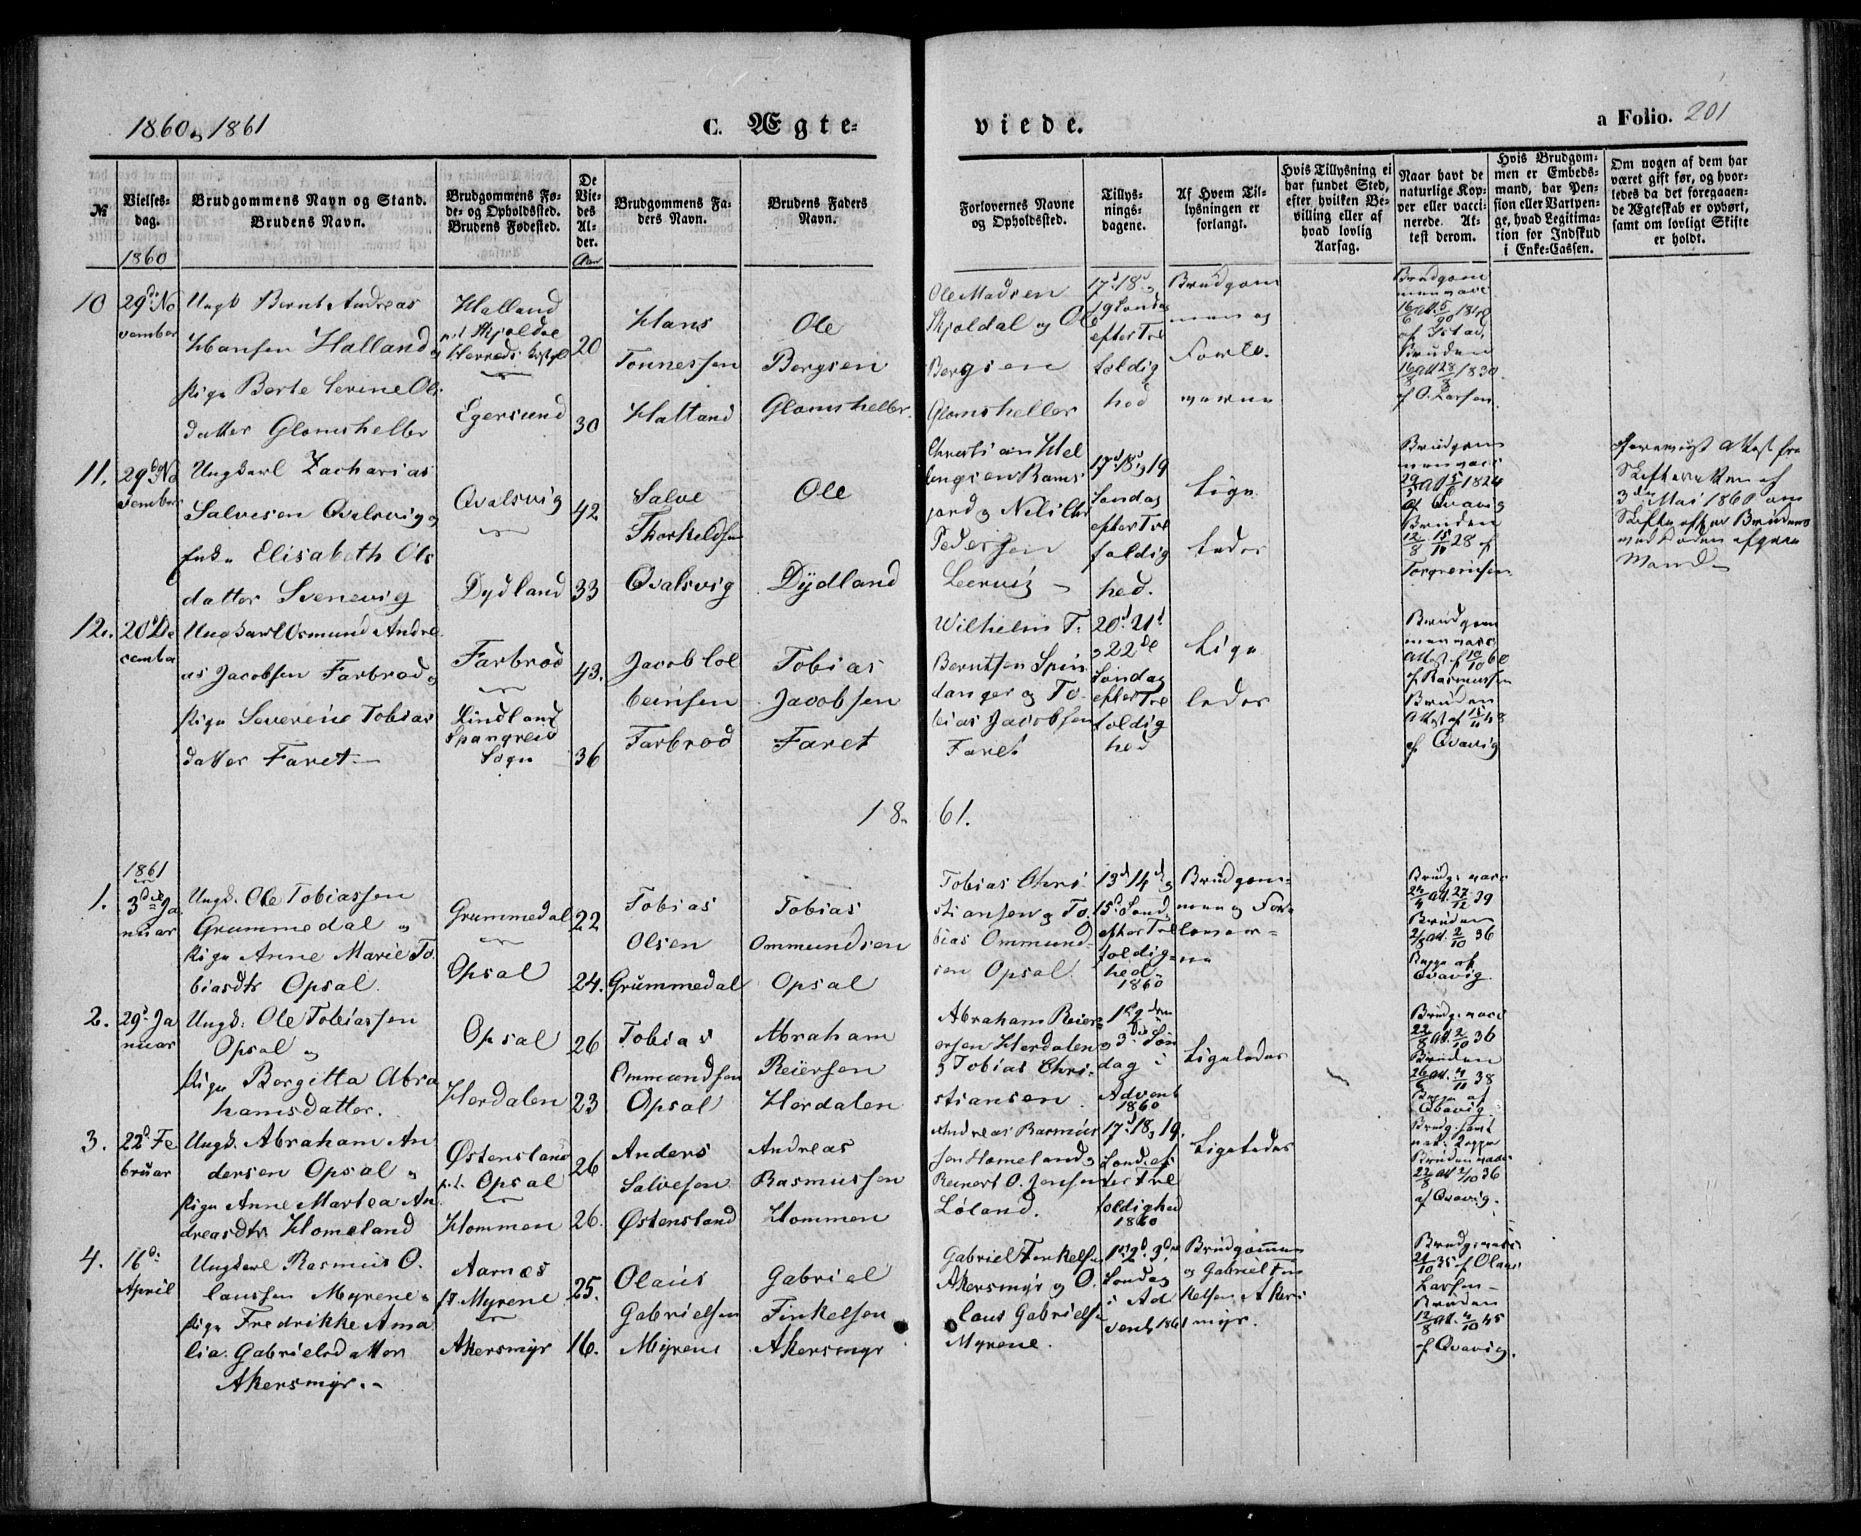 1860 og 1861
C. Ægte-
viede.
a Folio. 201
№
Vielses-
dag.
Brudgommens Navn og Stand.
Brudens Navn.
Brudgommens Fø-
de- og Opholdssted.
Brudens Fødested.
De
Vie-
des
Al-
der.
Brudgommens Fa-
ders Navn.
Brudens Faders
Navn.
Forlovernes Navne
og Opholdssted.
Tillys-
nings-
dagene.
Af Hvem Til-
lysningen er
forlangt.
Hvis Tillysning ei
har fundet Sted,
efter hvilken Be-
villing eller af
hvad lovlig
Aarsag.
Naar havt de
naturlige Kop-
per eller vacci-
nerede. At-
test derom.
Hvis Brudgom-
men er Embeds-
mand, har Pen-
sion eller Vartpen-
ge, hvad Legitima-
tion for Indskud
i Enke-Cassen.
Om nogen af dem har
været gift før, og hvor-
ledes da det foregaaen-
de Ægteskab er ophørt,
samt om lovligt Skifte
er holdt.
1860
Aar
10
29de No
vember
Ungk Bernt Andreas
Hansen Halland og
Pige Berte Serine Ols
datter Glomsheller
Halland
Egersund
20
30
Hans
Tønnessen
Halland
Ole
Bergsen
Glomsheller.
Ole Madsen
Skjoldal og Ole
Bergsen
Glomsheller
17d 18d og
19 Søndag
efter Tre
foldig
hed
Brudgom
men og
Forlo.
verne
Brudgom
men vacc
af Ystad,
Bruden
16/8 att 28/8 1830.
af O. Larsen.
11.
29de No
vember
Ungkarl Zacharias
Salvesen Qvalsvig og
Enke Elisabeth Ols
datter Svenevig
Qvalsvig
Dydland
42
33
Salve
Thorkeldsen
Qvalsvig
Ole
Dydland
Christian Hel
lingsen Rams
jord og Nils Chr
Pedersen
Leervig
17d 18d og 19
Søndag
efter Tre
foldig
hed.
Lige
ledes
Brudgom
men vacc
1824
af Qvavig
Bruden
12/8 15/10 28 af
Torgrimsen
Forevist Attest fra
Skifteretten af
3die Mai 1860 om
Skifte efter Brudens
ved Døden afgaaen
Mand
12.
20d De
cember
Ungkarl Osmund Andre
as Jacobsen Farbrod og
Pige Severine Tobias
datter Faret
Farbrod
Lindland
Spangreid
Sogn
43.
36
Jacob Tol
leivsen
Farbrod
Tobias
Jacobsen
Faret
Wilhelm T.
Berntsen Spin
danger og To-
bias Jacobsen
Faret
20d 21d
og 22de
Søndag
efter Tre
foldig
hed
Lige
ledes
Brudgom
men vacc
Attest af 10/10 60
af Rasmussen
Bruden
Attest af 15/11 48
af Qvavig
18
61.
1861
1.
3die Ja
nuar
Ungk. Ole Tobiassen
Grummedal og
Pige Anne Marie To.
biasdtr Opsal.
Grummedal
Opsal
22
24.
Tobias
Olsen
Grummedal
Tobias
Ommundsen
Opsal
Tobias Chri-
stiansen og To.
bias Ommund-
sen Opsal.
13d 14d og
15d Sønd.
efter Tre
foldig-
hed
1860
Brudgom-
men og For-
lover-
ne
Brudg. vacc
24/4 att. 27/12 39
Bruden
2/8 att. 2/10 36
Begge af
Qvavig.
2.
29d Ja
nuar
Ungk. Ole Tobiassen
Opsal og
Pige Bergitta Abra
hamsdatter.
Opsal
Hordalen
26
23
Tobias
Ommundsen
Opsal
Abraham
Reiersen
Hordalen
Abraham Reier-
ersen Hordalen
og Tobias Chri-
stiansen.
1ste 2den
og 3die Søn
dag i
Advent
1860
Ligeledes
Brudg. vacc
22/8 att. 2/10 36
Bruden
26/6 att. 4/11 38
Begge af
Qvavig.
3.
22d Fe
bruar
Ungk. Abraham An
dersen Opsal og
Pige Anne Martea An
dreasdtr Homeland
Østensland
p.t. Opsal
Hommen
26
26.
Anders
Salvesen
Østensland
Andreas
Rasmussen
Hommen
Andreas Rasmus
sen Homeland og
Reinert O. Jensen
Løland.
17d 18 og 19.
Sønd. ef
ter Tre
foldighed
1860
Ligeledes
Brudg. havt
nat. Kopper
Bruden vacc
22/8 att 2/10 36
af Qvavig.
4.
16d.
April
Ungkarl Rasmus O.
laussen Myrene og
Pige Fredrikke Ama
lia Gabrielsdatter
Akersmyr.
Aarnes
p.t. Myrene
Akersmyr
25.
16.
Olaus
Gabrielsen
Myrene
Gabriel
Finkelsen
Akersmyr
Gabriel Finkelsen
Akersmyr og O.
laus Gabrielsen
Myrene.
1ste 2d 3die
Søndag
i Ad
vent 1861
Brudgommen
og Gabriel Fin
kelsen Akers
myr.
Brudg. vacc
21/10 35 af Olaus
Larsen
Bruden
12/8 att. 4/10 45
af Qvavig.